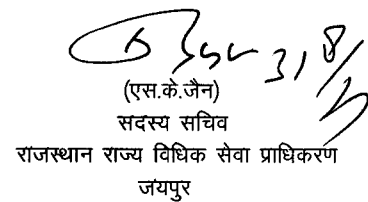 31/8/
(एस.के.जैन)
सदस्य सचिव
राजस्थान राज्य विधिक सेवा प्राधिकरण
जयपुर